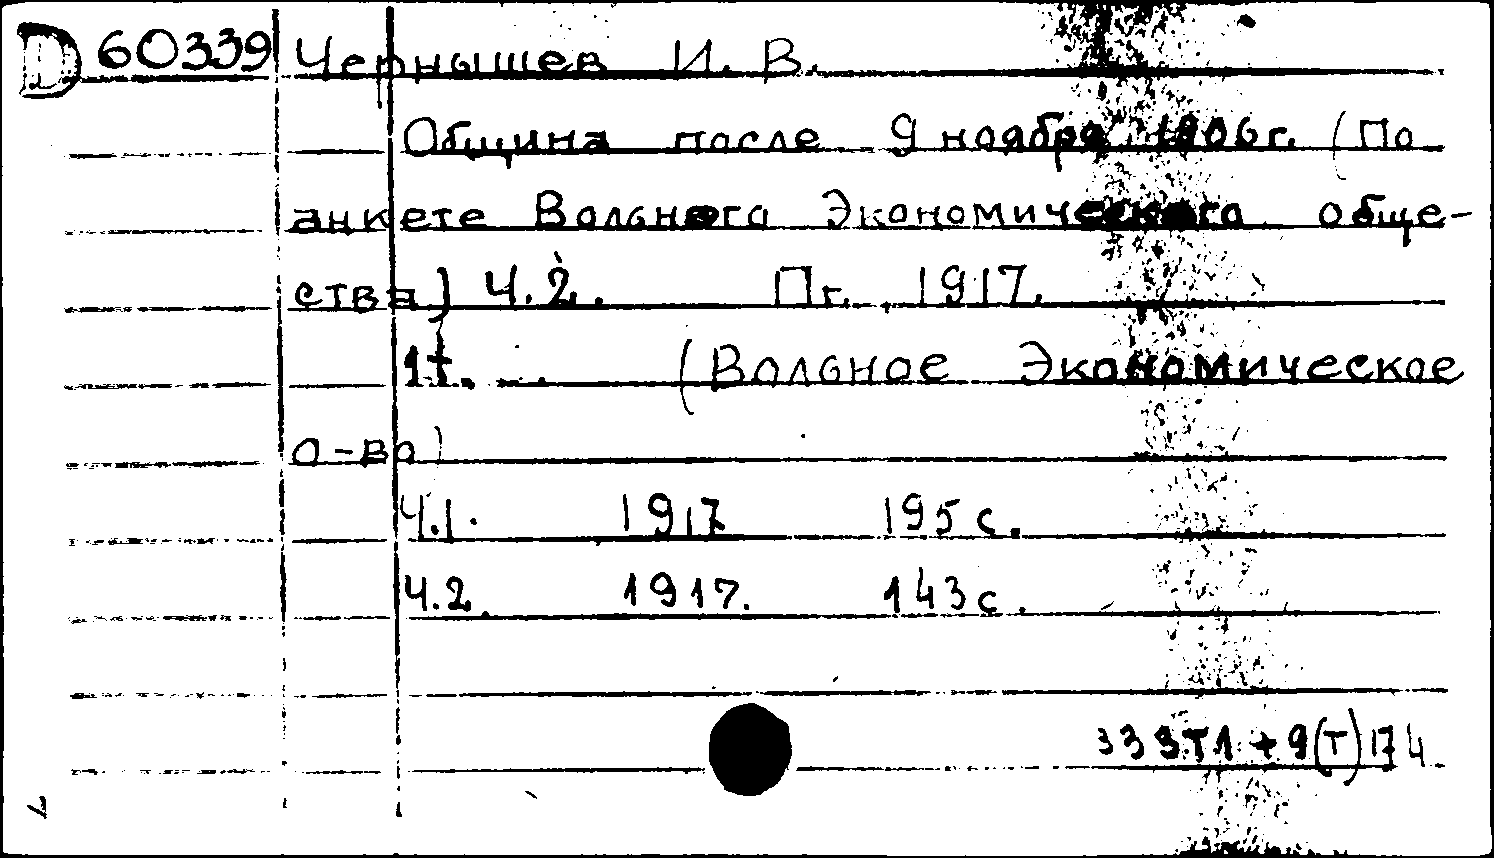 D 60339 Чернышев И. В.
Община после 9 ноября 1906 г. (По
анкете Вольного Экономического обще-
ства) Ч.2. Пг. 1917.
1т. (Вольное Экономическое
о-во)
Ч.1. 1917 195 с.
Ч.2. 1917. 143 с.
333Т1 + 9(Т)174